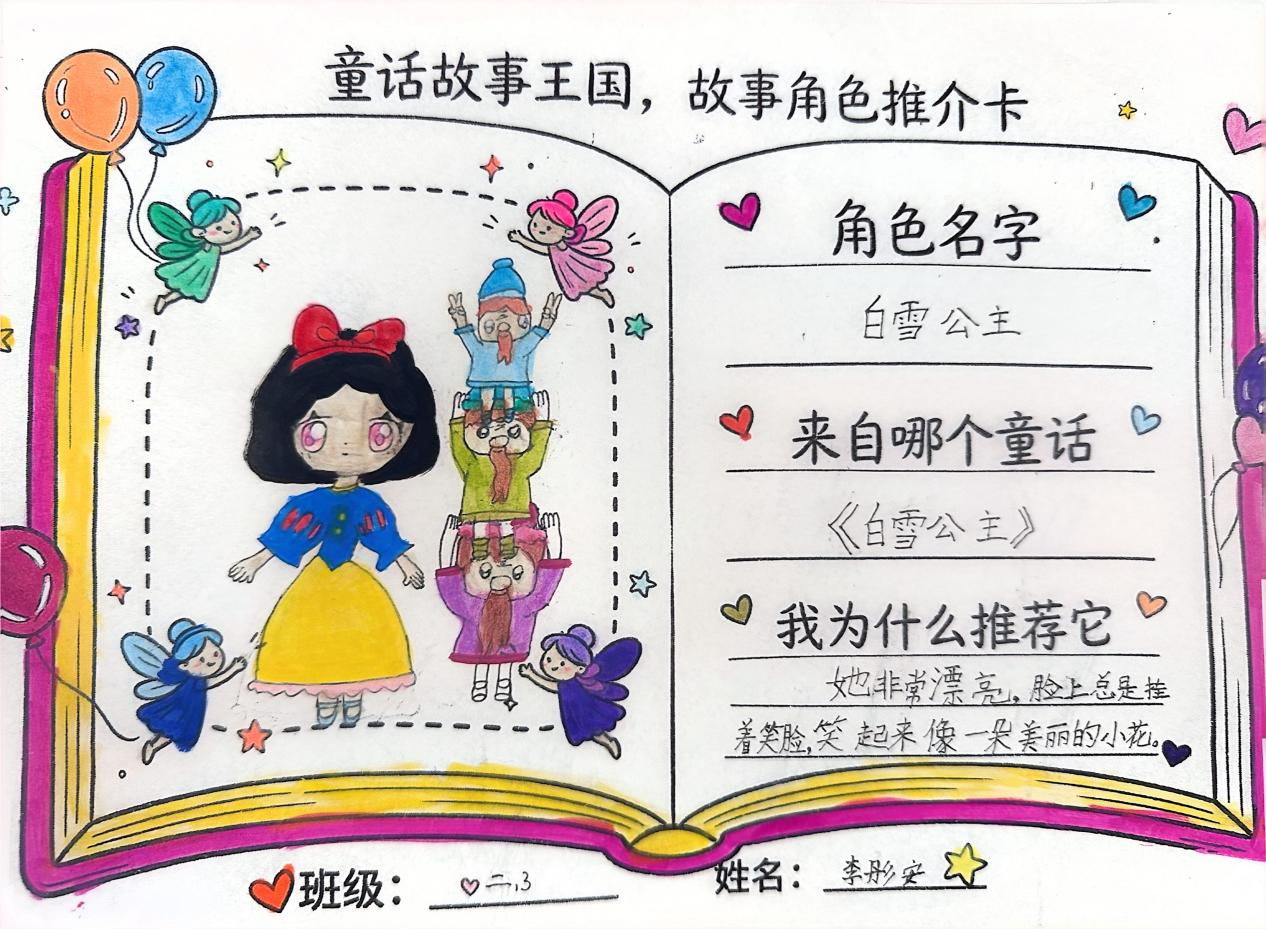 童话故事王国，故事角色推介卡
角色名字
白雪公主
来自哪个童话
《白雪公主》
我为什么推荐它
她非常漂亮，脸上总是挂
着笑脸，笑起来像一朵美丽的小花。
班级：二.3
姓名：李彤安